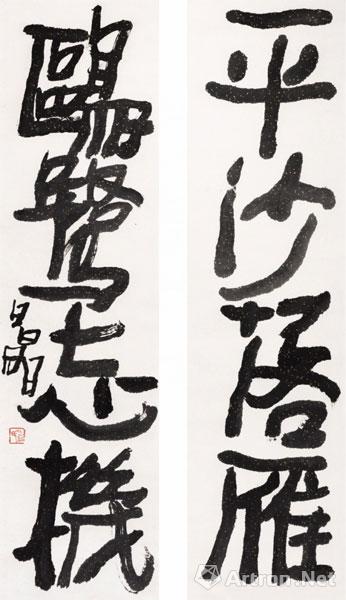 平沙落雁
鷗鷺忘機
Artron.Net